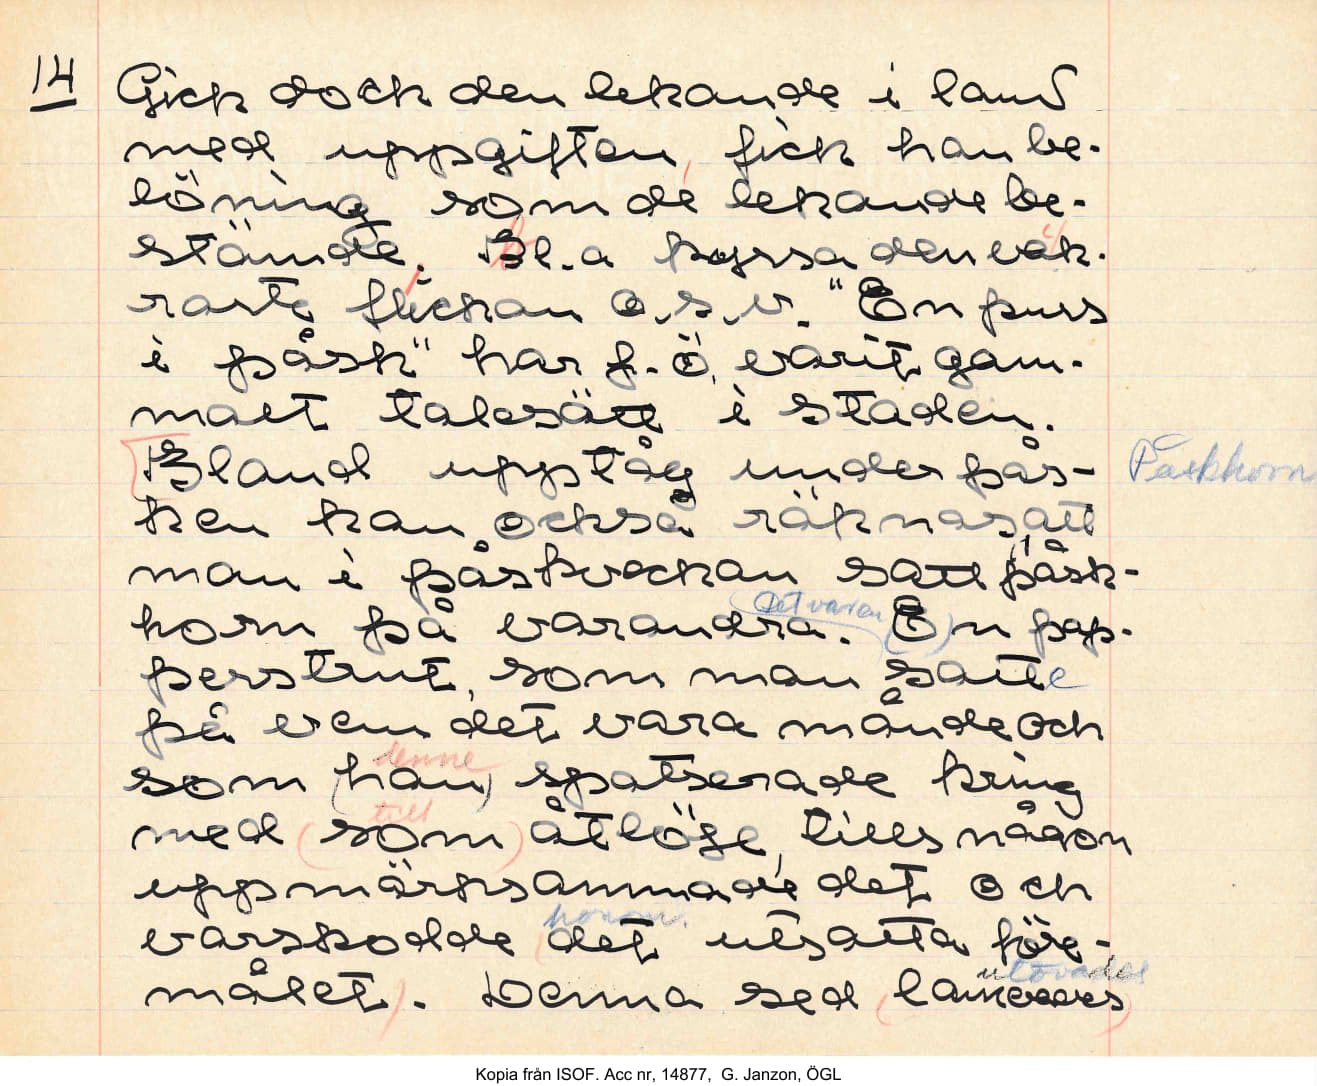 14 Gick dock den lekande i land
med uppgiften, fick han be-
löning som de lekande be-
stämde. Bl.a kyssa den vak-
raste flickan o.s.v. "En puss
i påsk" har f.ö. varit gam-
malt talesätt i staden.
Bland upptåg under pås- Påskhorn
ken kan också räknas att
man i påskveckan satt påsk-
det var en
horn på varandra. En pap-
perstrut, som man satte
på vem det vara månde och
denne
som (han) spatserade kring
till
med (som) åtlöje, tills någon
uppmärksammade det och
honom.
varskodde det utsatta före-
utövades
målet. Denna sed
Kopia från ISOF. Acc nr, 14877, G. Janzon, ÖGL